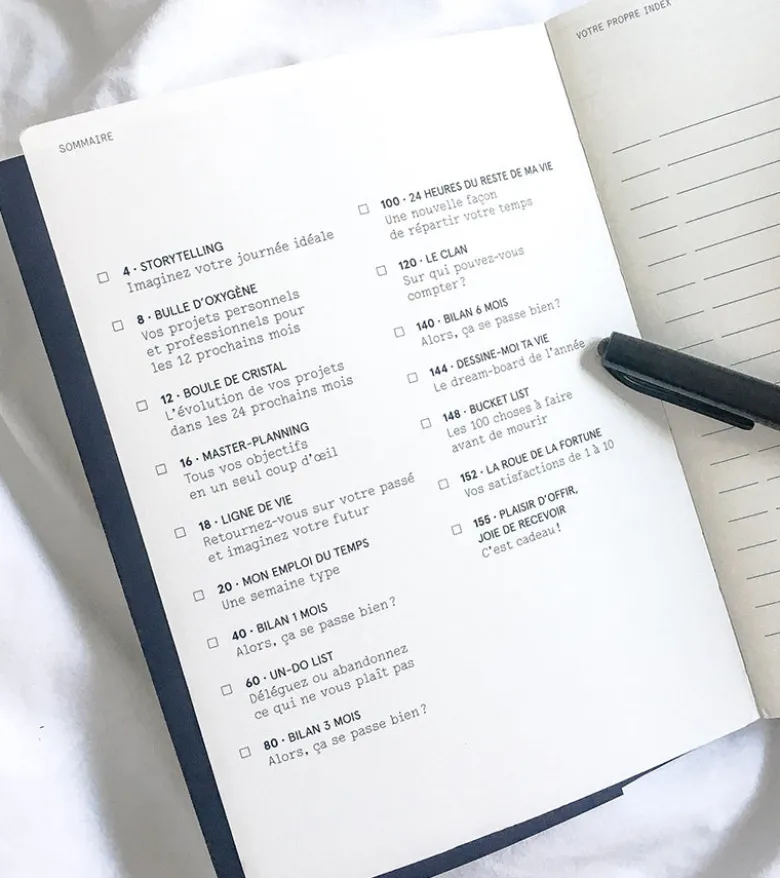 SOMMAIRE
4 · STORYTELLING
Imaginez votre journée idéale
8 · BULLE D'OXYGÈNE
Vos projets personnels
et professionnels pour
les 12 prochains mois
12 · BOULE DE CRISTAL
L'évolution de vos projets
dans les 24 prochains mois
16 · MASTER-PLANNING
Tous vos objectifs
en un seul coup d'œil
18 · LIGNE DE VIE
Retournez-vous sur votre passé
et imaginez votre futur
20 · MON EMPLOI DU TEMPS
Une semaine type
40 · BILAN 1 MOIS
Alors, ça se passe bien ?
60 · UN-DO LIST
Déléguez ou abandonnez
ce qui ne vous plaît pas
80 · BILAN 3 MOIS
Alors, ça se passe bien ?
100 · 24 HEURES DU RESTE DE MA VIE
Une nouvelle façon
de répartir votre temps
120 · LE CLAN
Sur qui pouvez-vous
compter ?
140 · BILAN 6 MOIS
Alors, ça se passe bien ?
144 · DESSINE-MOI TA VIE
Le dream-board de l'année
148 · BUCKET LIST
Les 100 choses à faire
avant de mourir
152 · LA ROUE DE LA FORTUNE
Vos satisfactions de 1 à 10
155 · PLAISIR D'OFFIR,
JOIE DE RECEVOIR
C'est cadeau !
VOTRE PROPRE INDEX